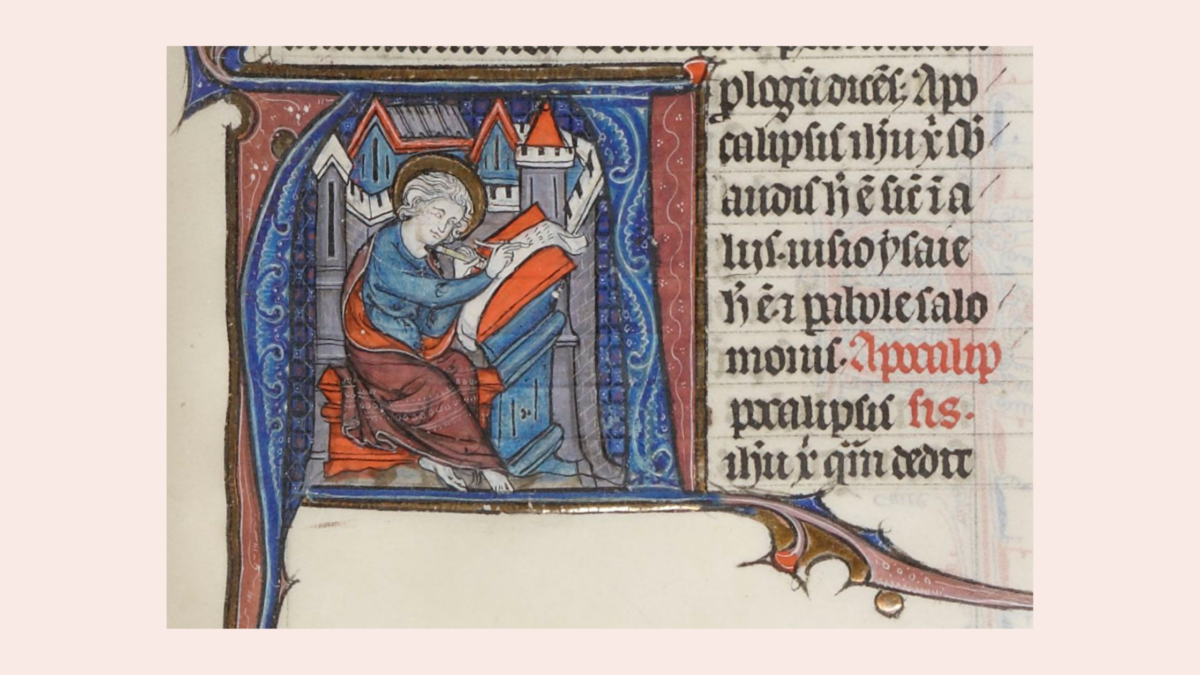 plogū dicēs; Apo
calipsis ihu x̄ sb̄
audis h̄ ē sic̄ ī a
liis. uisio ysaie
h̄ ē. ⁊ pabole salo
monis. Apocalip
pocalipsis sis.
ihu x̄ qm̄ dedit